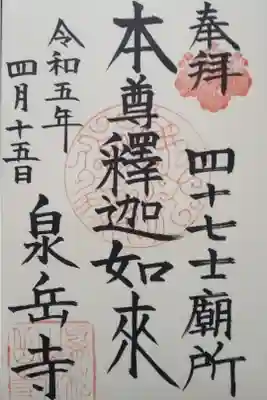 奉拜
四十七士廟所
本尊釋迦如來
泉岳寺
令和五年
四月十五日